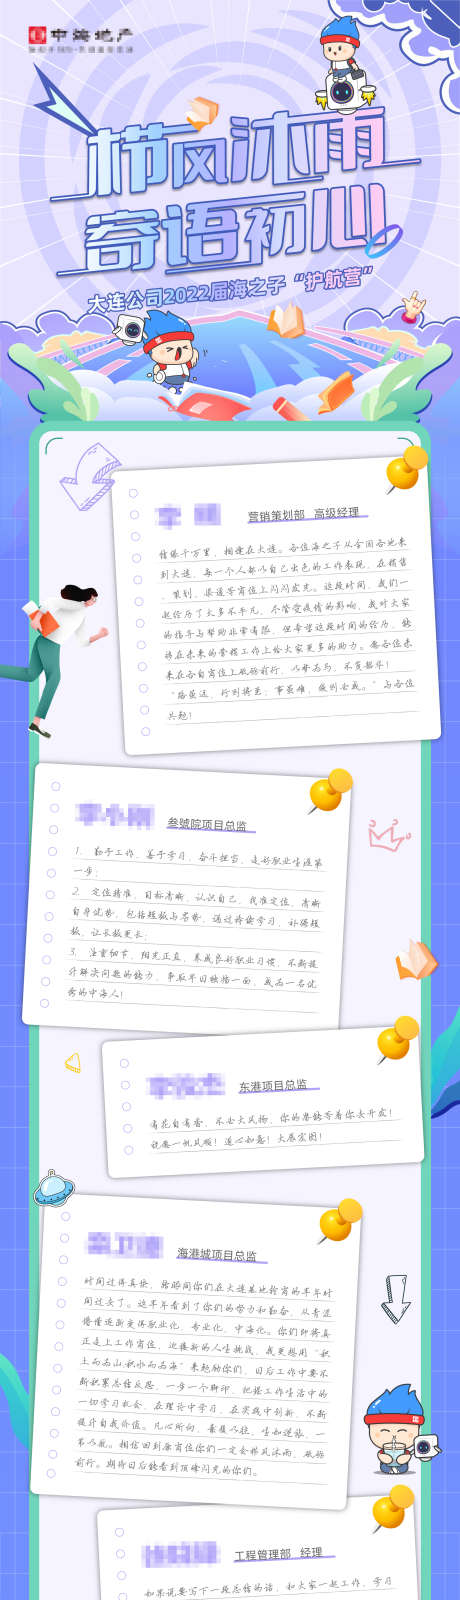 中海地产
栉风沐雨
寄语初心
大连公司2022届海之子“护航营”
营销策划部 高级经理
情缘千万里，相逢在大连。各位海之子从全国各地来
到大连，每一个人都以自己出色的工作表现，在销售
、策划、渠道等岗位上闪闪发光。这段时间，我们一
起经历了太多不平凡，不管受疫情的影响，我对大家
的指导与帮助非常有限，但希望这段时间的经历，能
够在未来的营销工作上给大家更多的助力。愿各位未
来在各自岗位上砥砺前行，以梦为马，不负韶华！
“路虽远，行则将至；事虽难，做则必成。”与各位
共勉！
叁號院项目总监
1、勤于工作、善于学习、奋斗担当，走好职业生涯第
一步；
2、定位精准、目标清晰，认识自己，找准定位，清晰
自身优势，包括短板与劣势，通过持续学习，补强短
板，让长板更长；
3、注重细节、阳光正直，养成良好职业习惯，不断提
升解决问题的能力，争取早日独挡一面，成为一名优
秀的中海人！
东港项目总监
有花自有香，不必大风扬，你的磨能等着你去开发！
祝愿一帆风顺！遂心如意！大展宏图！
海港城项目总监
时间过得真快，转眼间你们在大连基地轮岗的半年时
间过去了。这半年看到了你们的努力和勤奋，从青涩
懵懂逐渐变得职业化、专业化、中海化。你们即将真
正走上工作岗位，迎接新的人生挑战，我更想用“积
土而为山，积水而为海”来勉励你们，日后工作中要不
断积累总结反思，一步一个脚印，把握工作生活中的
一切学习机会，在理论中学习，在实践中创新，不断
提升自我价值。凡心所向，素履以往，生如逆旅，一
苇以航。相信回到原岗位你们一定会栉风沐雨、砥砺
前行。期待日后能看到顶峰闪光的你们。
工程管理部 经理
如果说要写下一段总结的话，和大家一起工作、学习